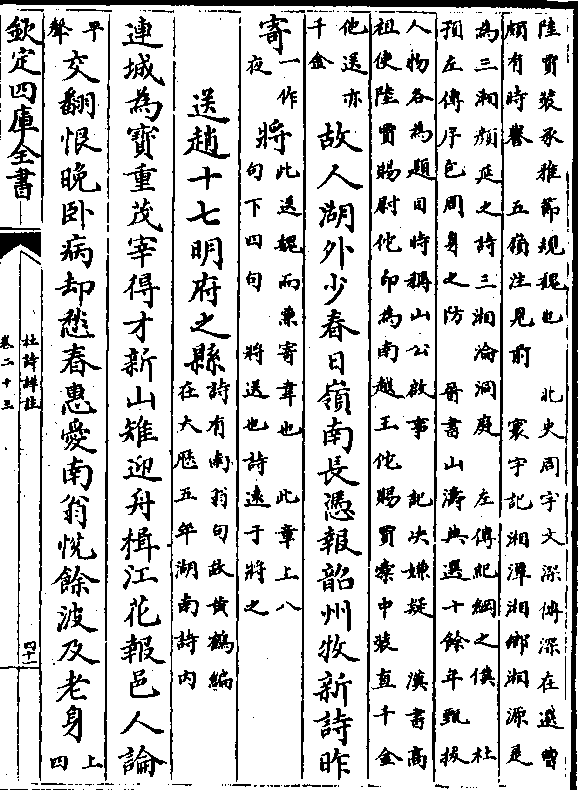 陸賈裝承雅節規魏也　北史周宇文深傳深在選曹
頗有時譽　五嶺注見前　寰宇記湘潭湘鄉湘源是
為三湘顏延之詩三湘淪洞庭　左傳紀綱之僕　杜
預左傳序包周身之防　晉書山濤典選十餘年甄拔
人物各為題目時稱山公啟事　記決嫌疑　漢書高
祖使陸賈賜尉佗印為南越王佗賜賈橐中裝直千金
他送亦
千金
故人湖外少春日嶺南長憑報韶州牧新詩昨
寄
一作
夜
將
此送魏而兼寄韋也　此章上八
句下四句　將送也詩遠于將之
送趙十七明府之縣
詩有南翁句故黃鶴編
在大歷五年湖南詩內
連城為寶重茂宰得才新山雉迎舟楫江花報邑人論
平
聲
交翻恨晚臥病却愁春惠愛南翁悅餘波及老身
上
四
欽定四庫全書
杜詩詳註
卷二十三